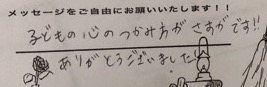 メッセージをご自由にお願いいたします！！
子どもの心のつかみ方がさすがです!!
ありがとうございました!